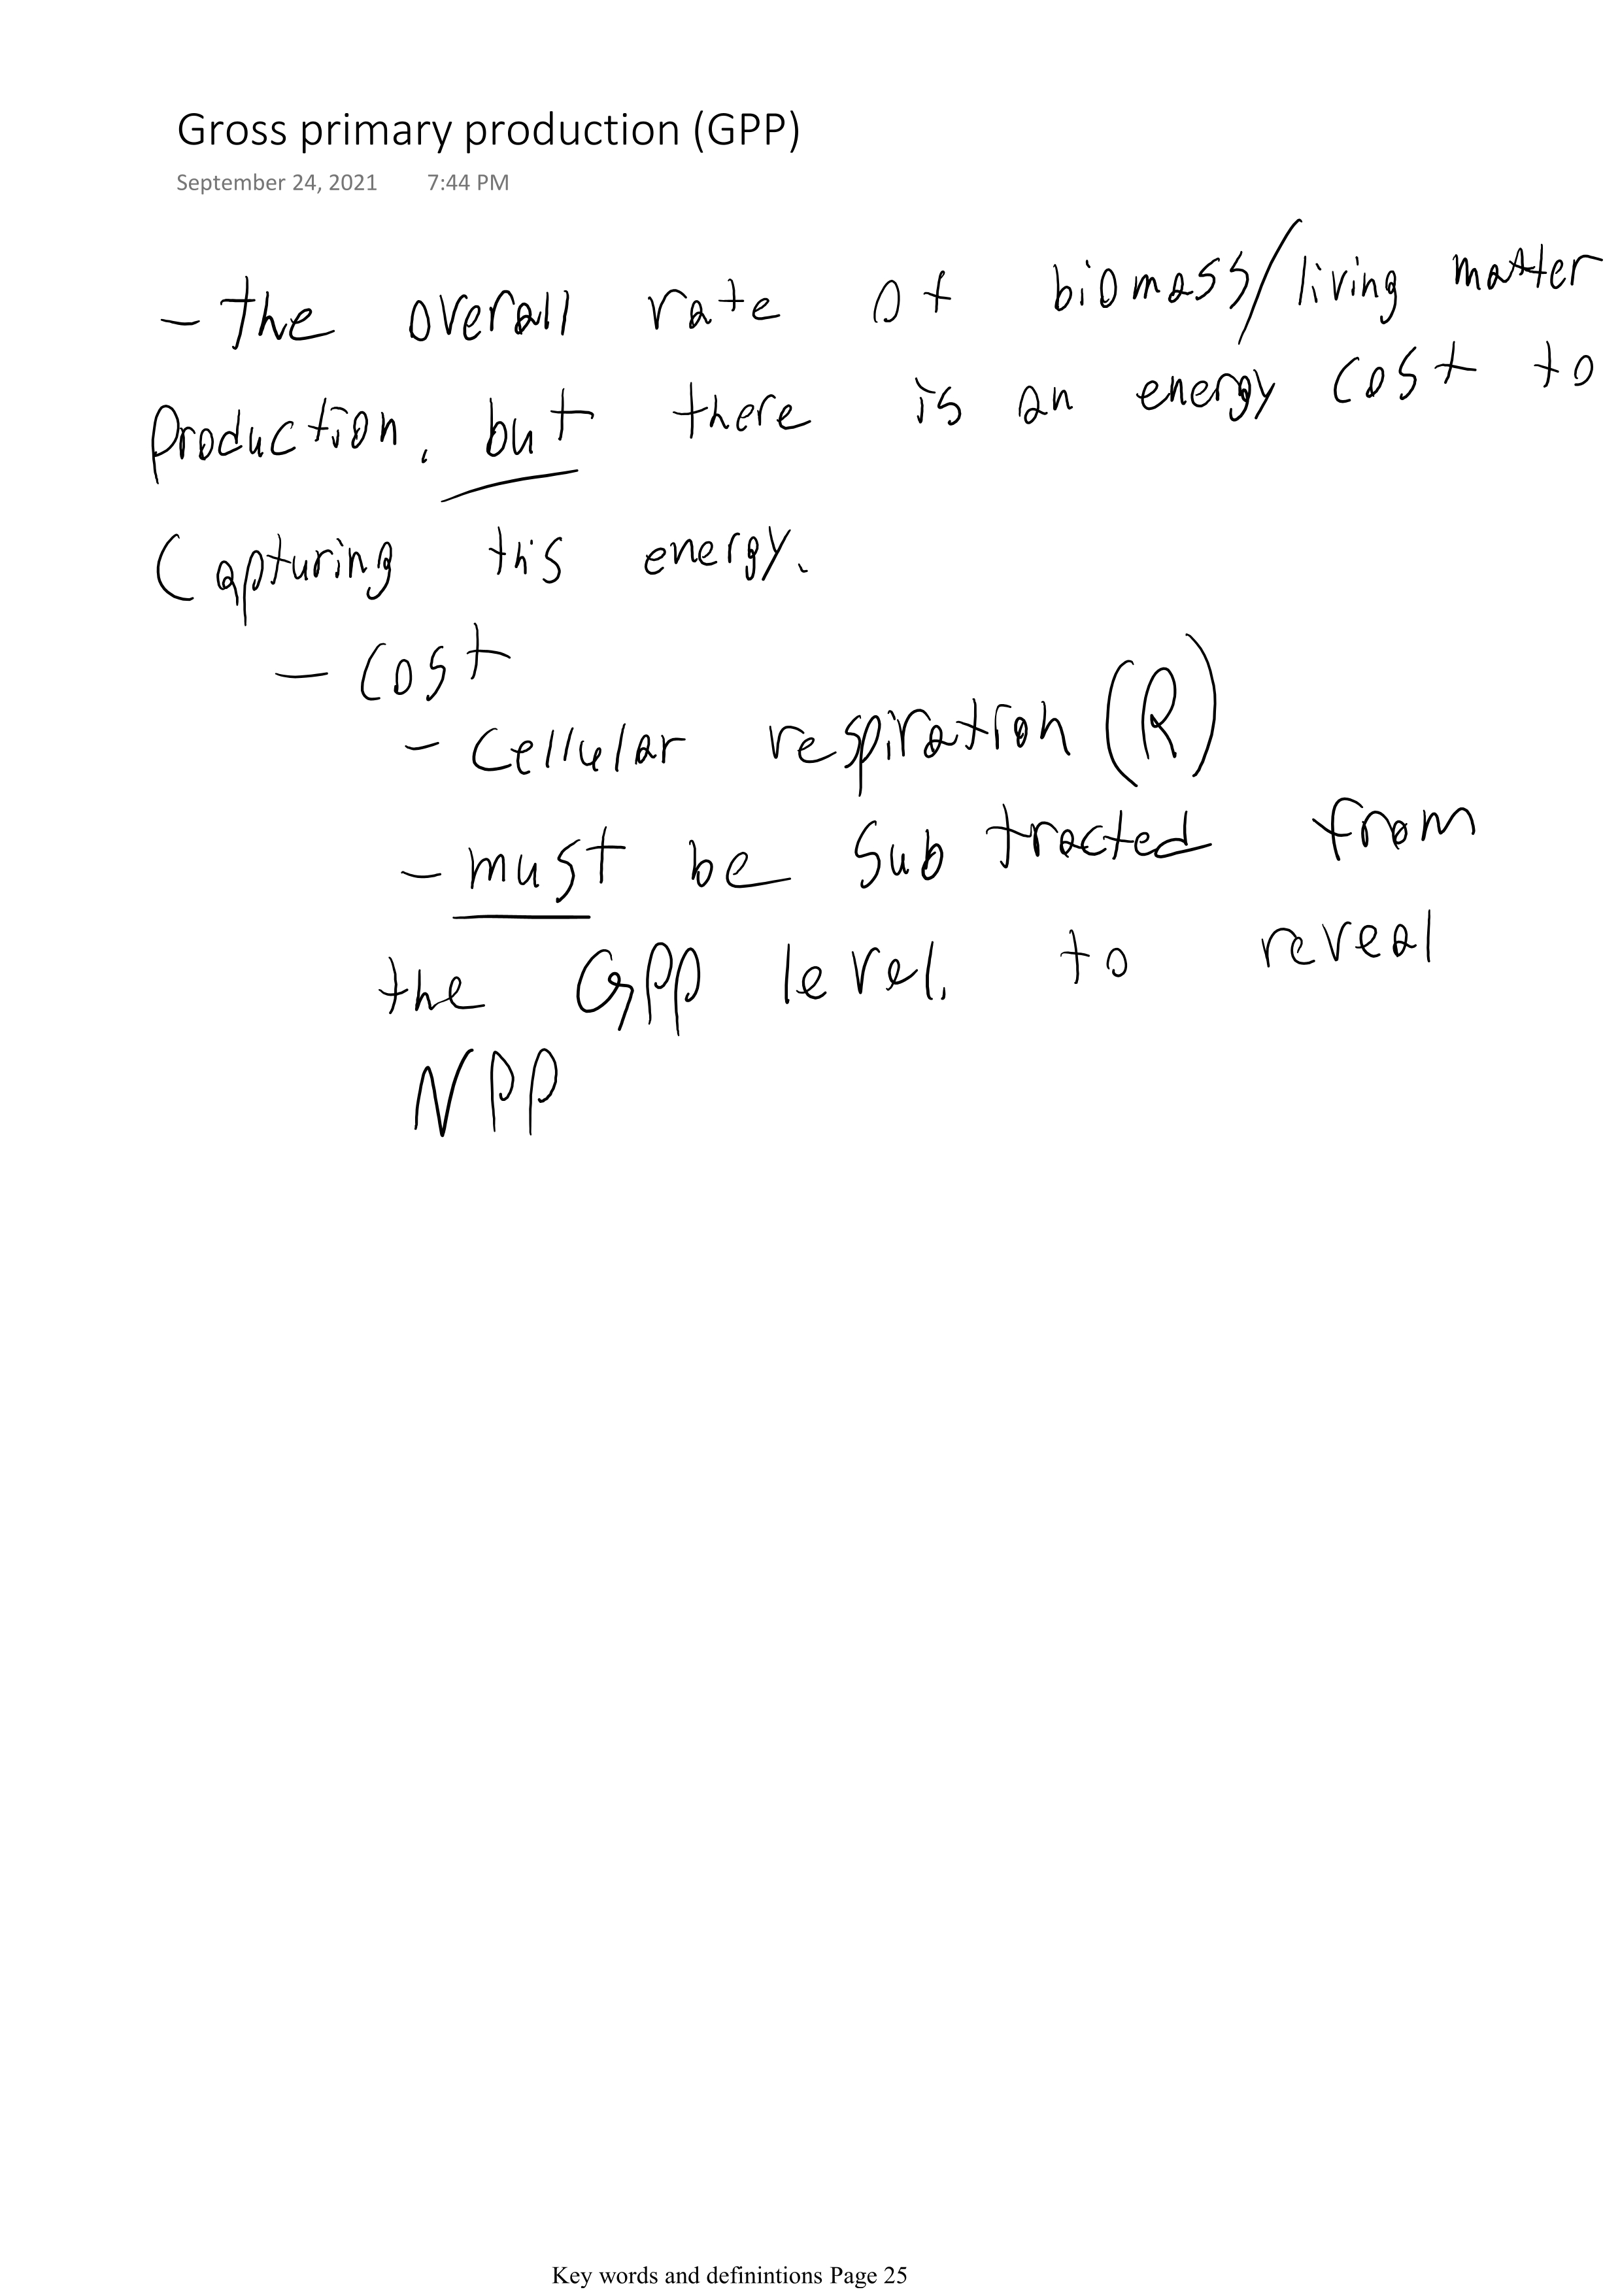 Gross primary production (GPP)
September 24, 2021 7:44 PM
- the overall rate of biomass/living matter
production, but there is an energy cost to
Capturing this energy.
- Cost
- Cellular respiration (R)
- must be subtracted from
the GPP level. to reveal
NPP
Key words and definintions Page 25